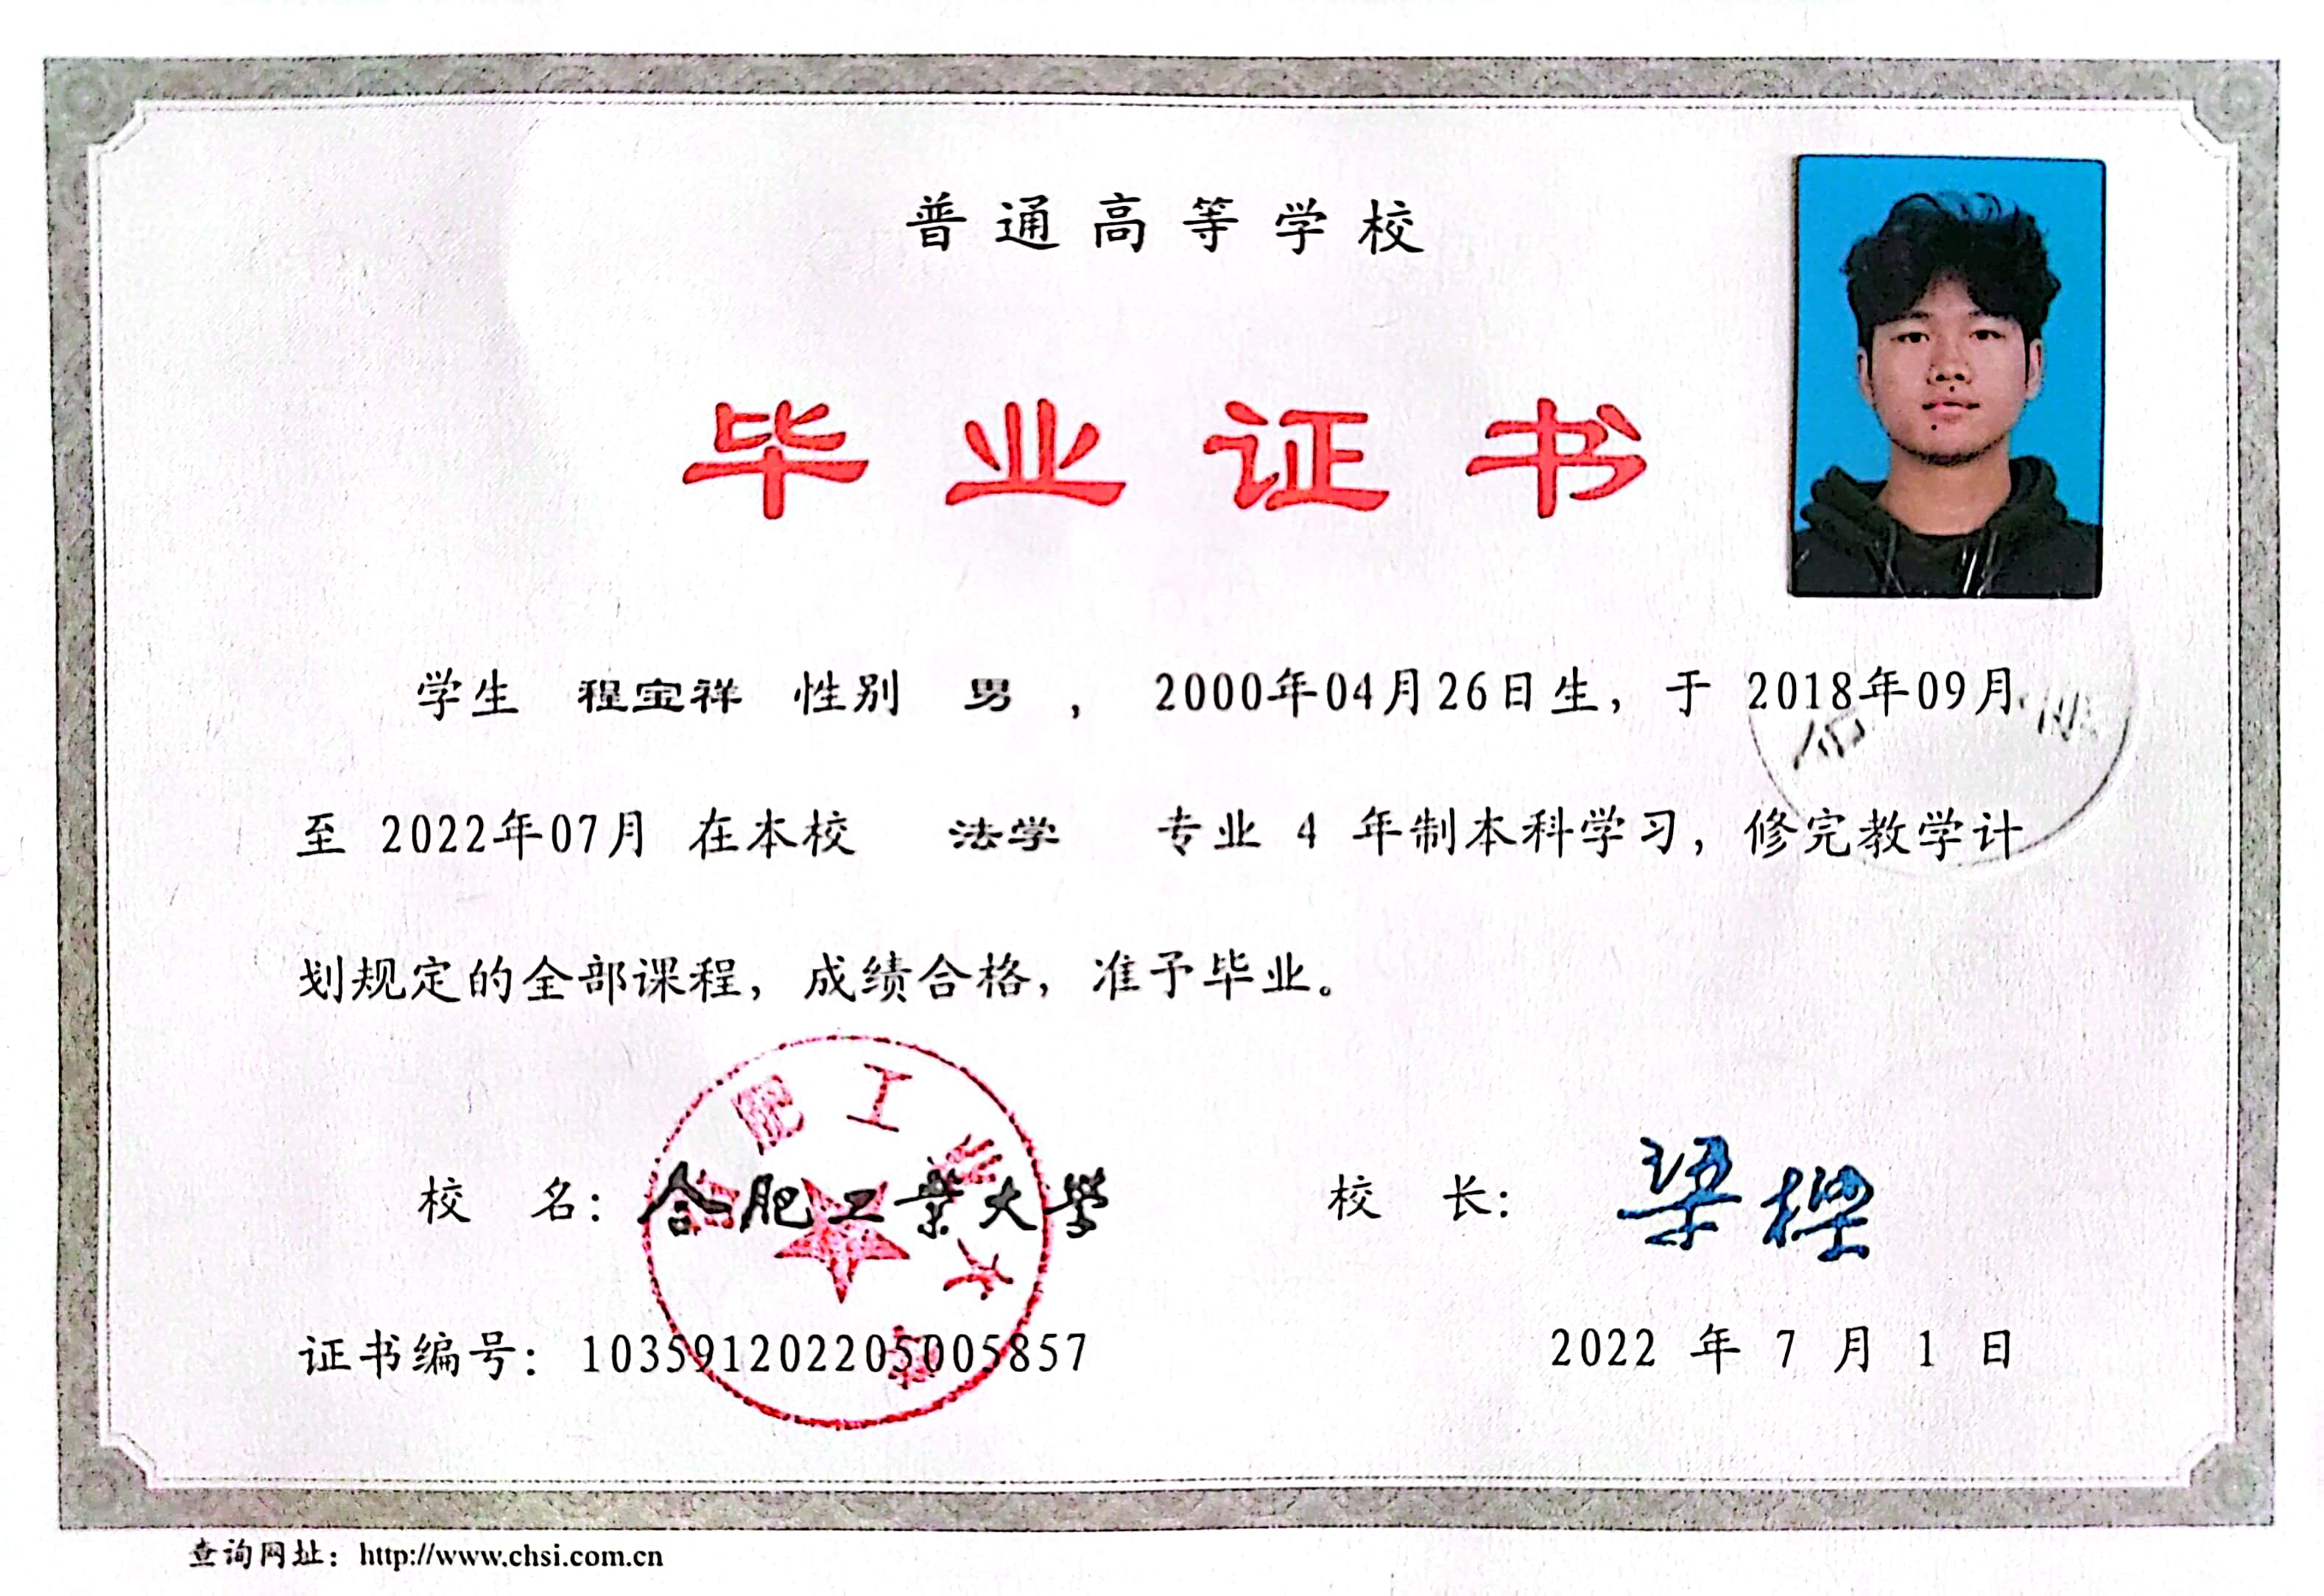 普通高等学校
毕业证书
学生 程宝祥 性别 男 ， 2000年04月26日生，于 2018年09月
至 2022年07月 在本校 法学 专业 4 年制本科学习，修完教学计
划规定的全部课程，成绩合格，准予毕业。
校 名：合肥工业大学 校 长：梁樑
肥工业大
证书编号：103591202205005857 2022 年 7 月 1 日
查询网址：http://www.chsi.com.cn